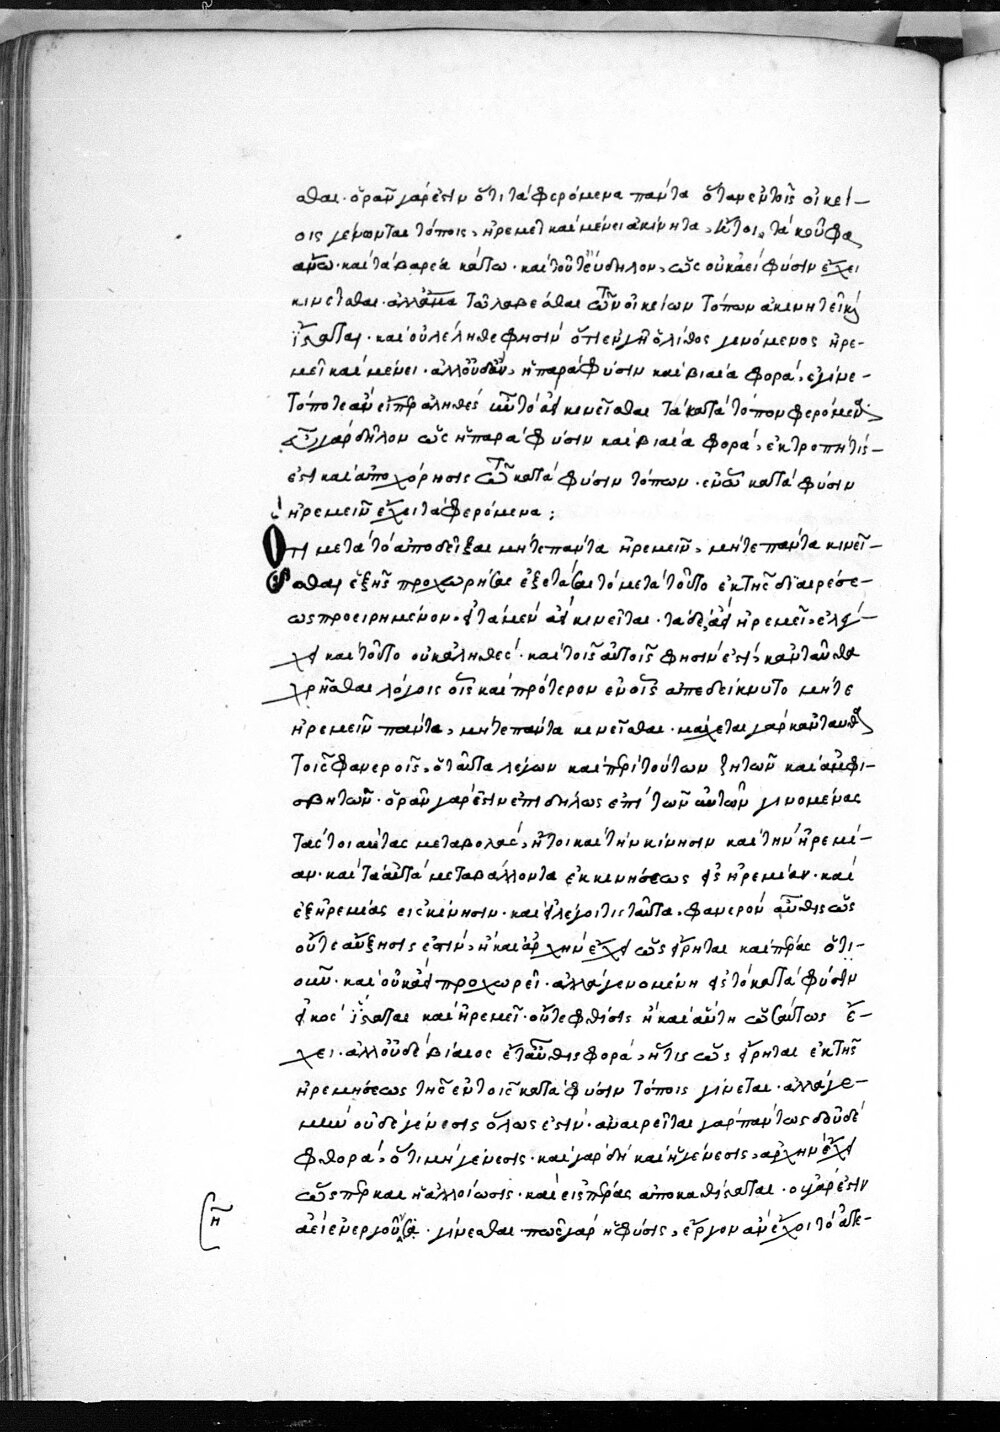 σθαι· ὁρᾶν γάρ ἐστιν ὅτι τὰ φερόμενα πάντα ὅταν ἐν τοῖς οἰκεί-
οις γένωνται τόποις, ἠρεμεῖ καὶ μένει ἀκίνητα, ἤτοι, τὰ κοῦφα
ἄνω· καὶ τὰ βαρέα κάτω· καὶ τοῦτ' εὔδηλον, ὡς οὐκ ἀεὶ φύσιν ἔχει
κινεῖσθαι· ἀλλ' ἅμα τῷ λαβέσθαι τῶν οἰκείων τόπων ἀκινητεῖ καὶ
ἵσταται· καὶ οὐ λέληθε φησὶν ὅτι ἐν γῇ ὁ λίθος γενόμενος ἠρε-
μεῖ καὶ μένει· ἀλλ' οὐδ' ἂν, ἡ παρὰ φύσιν καὶ βιαία φορά, ἐγίνε-
το ποτὲ ἂν εἴπερ ἀληθὲς ἦν τὸ ἀεὶ κινεῖσθαι τὰ κατὰ τόπον φερόμενα,
γὰρ δῆλον ὡς ἡ παρὰ φύσιν καὶ βιαία φορά, ἐκτροπή τίς-
ἐστι καὶ ἀποχώρησις τῶν κατὰ φύσιν τόπων· ἐν ᾧ κατὰ φύσιν
ἠρεμεῖν ἔχει τὰ φερόμενα:
Ὅτι μετὰ τὸ ἀποδεῖξαι μήτε πάντα ἠρεμεῖν, μήτε πάντα κινεῖ-
σθαι ἑξῆς προχωρήσας ἐξετάσαι τὸ μετὰ τοῦτο ἐκ τῆς διαιρέσε-
ως προειρημένον· εἰ τὰ μὲν ἀεὶ κινεῖται· τὰ δὲ, ἀεὶ ἠρεμεῖ, ἐλέγ-
χει καὶ τοῦτο οὐκ ἀληθές· καὶ τοῖς αὐτοῖς φησὶν ἐστὶ, κἀνταῦθα
χρῆσθαι λόγοις οἷς καὶ πρότερον ἐν οἷς ἀπεδείκνυτο μήτε
ἠρεμεῖν πάντα, μήτε πάντα κινεῖσθαι· μάχεται γὰρ κἀνταῦθα
τοῖς φανεροῖς, ὁ ταῦτα λέγων καὶ περὶ τούτων ζητῶν καὶ ἀμφι-
σβητῶν· ὁρᾶν γάρ ἐστιν ἐπιδήλως ἐπὶ τῶν αὐτῶν γινομένας
τὰς τοιαύτας μεταβολάς, ἤτοι καὶ τὴν κίνησιν καὶ τὴν ἠρεμί-
αν· καὶ τὰ αὐτὰ μεταβάλλοντα ἐκ κινήσεως εἰς ἠρεμίαν· καὶ
ἐξ ἠρεμίας εἰς κίνησιν· καὶ εἰ λέγοι τις ταῦτα, φανερὸν αὖθις ὡς
οὔτε αὔξησις ἐστὶν, ἢ καὶ ἀρχὴν ἔχει ὡς εἴρηται καὶ πέρας ὅτι-
οῦν· καὶ οὐκ ἀεὶ προχωρεῖ· ἀλλὰ γενομένη εἰς τὸ κατὰ φύσιν
εἰκὸς ἵσταται καὶ ἠρεμεῖ· οὔτε φθίσις ἢ καὶ αὕτη ὡσαύτως ἔ-
χει· ἀλλ' οὐδὲ βίαιος ἔτ' αὖθις φορά, ἥτις ὡς εἴρηται ἐκ τῆς
ἠρεμήσεως τῆς ἐν τοῖς κατὰ φύσιν τόποις γίνεται· ἀλλὰ γε-
μὴν οὐδὲ γένεσις ὅλως ἐστίν· ἀναιρεῖται γὰρ πάντως οὐδὲ
φθορά, ὅτι μὴ γένεσις· καὶ γὰρ δὴ καὶ ἡ γένεσις, ἀρχὴν ἔχει
ὥσπερ καὶ ἡ ἀλλοίωσις· καὶ εἰς πέρας ἀποκαθίσταται· οὐ γάρ ἐστιν
ἀεὶ ἐνεργοῦσα γίνεσθαι· πῶς γὰρ ἡ φύσις, ἔργον ἂν ἔχοι τὸ ἀτε-
ἢ